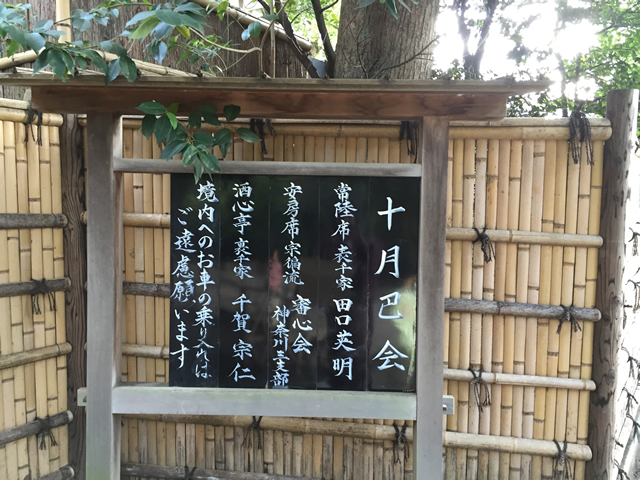 十月巴会
常陸席 表千家 田口英明
安房席 宗徧流 審心会
神奈川支部
洒心亭 裏千家 千賀宗仁
境内へのお車の乗り入れは
ご遠慮願います